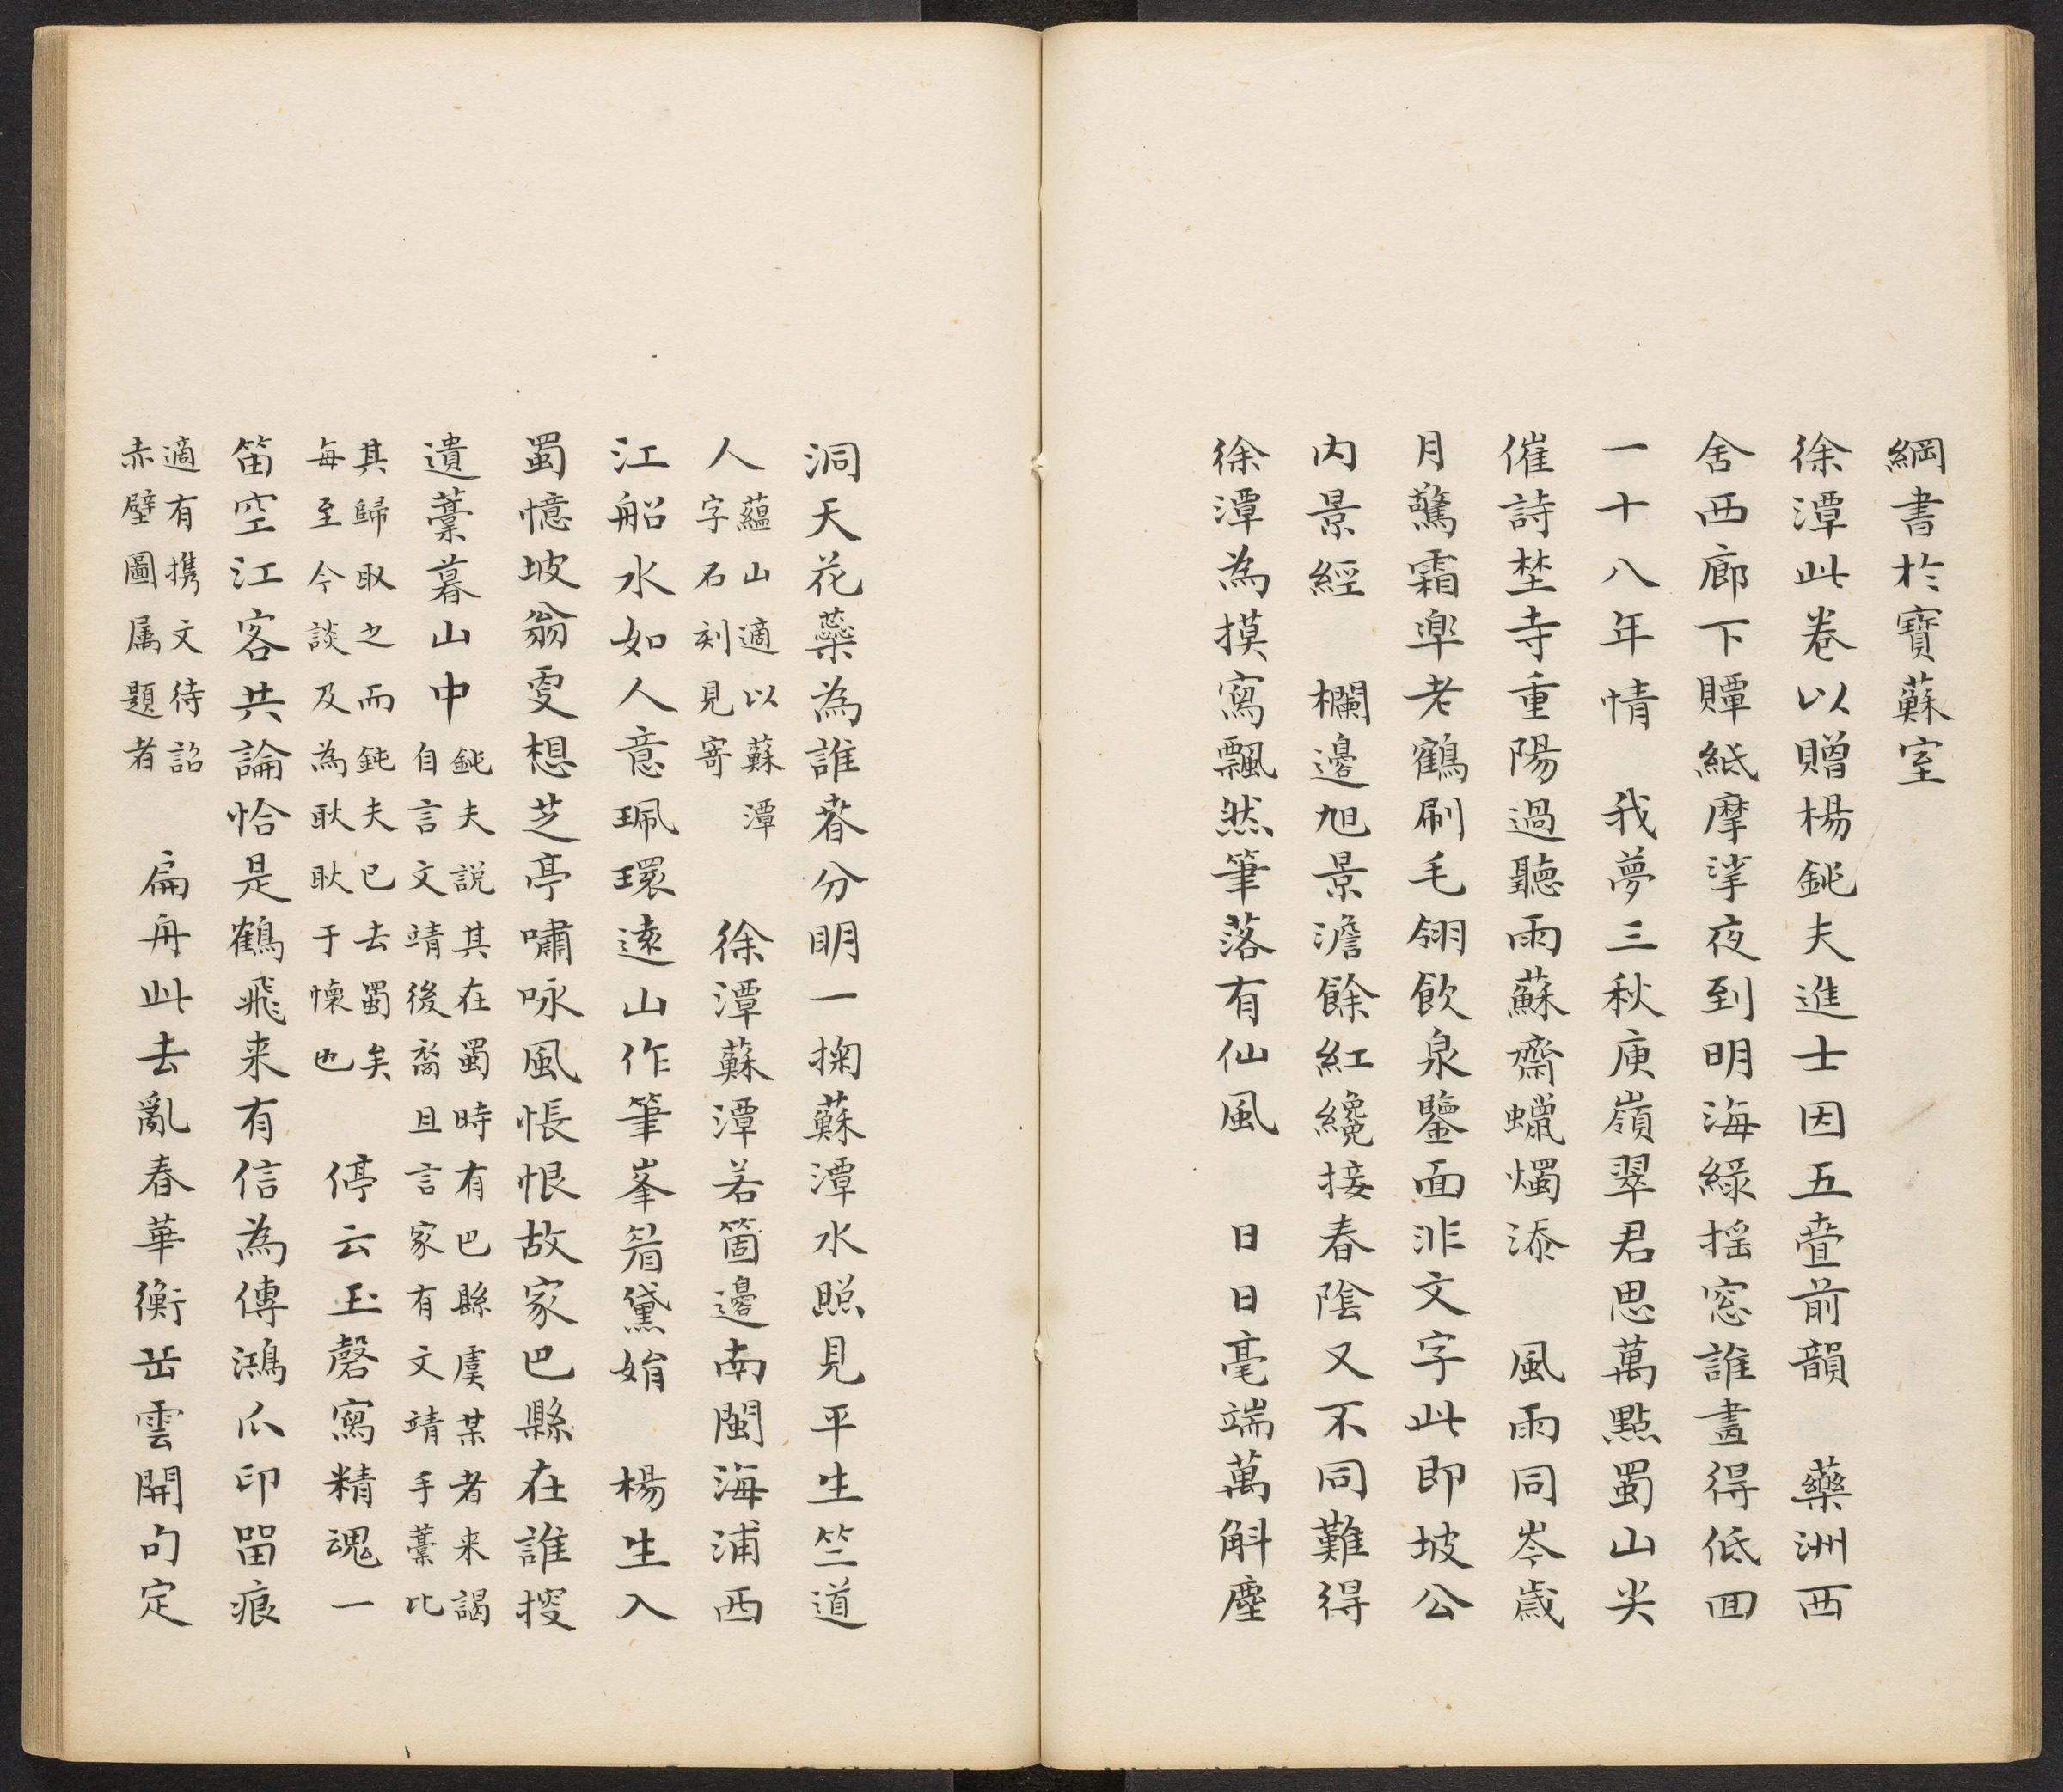 綱書於寶蘇室
徐潭此卷以贈楊鈍夫進士因五疊前韻　藥洲西
舍西廊下贉紙摩挲夜到明海綠搖窓誰畫得低回
一十八年情　我夢三秋庾嶺翠君思萬點蜀山尖
催詩埜寺重陽過聽雨蘇齋蠟燭添　風雨同岑歲
月驚霜臯老鶴刷毛翎飲泉鑒面非文字此即坡公
内景經　欄邊旭景澹餘紅纔接春陰又不同難得
徐潭為摸寫飄然筆落有仙風　日日毫端萬斛塵
洞天花蘂為誰春分明一掬蘇潭水照見平生竺道
人蘊山適以蘇潭
字石刻見寄　徐潭蘇潭若箇邊南閩海浦西
江船水如人意珮環遠山作筆峯眉黛娟　楊生入
蜀憶坡翁更想芝亭嘯咏風悵恨故家巴縣在誰搜
遺藁暮山中鈍夫說其在蜀時有巴縣虞某者来謁
自言文靖後裔且言家有文靖手藁比
其歸取之而鈍夫已去蜀矣
每至今談及為耿耿于懷也　停云玉磬寫精魂一
笛空江客共論恰是鶴飛来有信為傳鴻爪印留痕
適有携文待詔
赤壁圖属題者　扁舟此去亂春華衡岳雲開句定